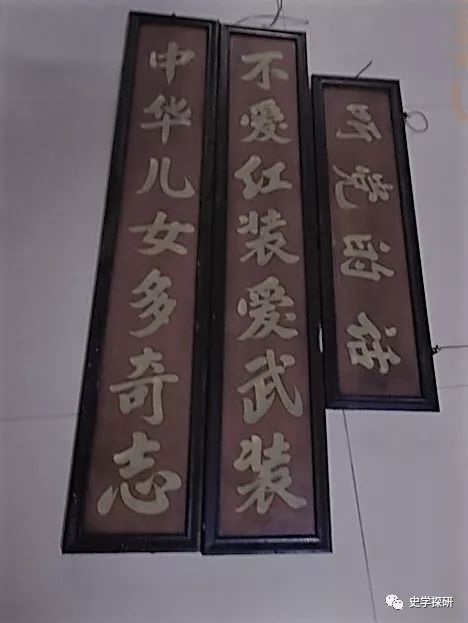 中华儿女多奇志
不爱红装爱武装
听党的话
史学探研